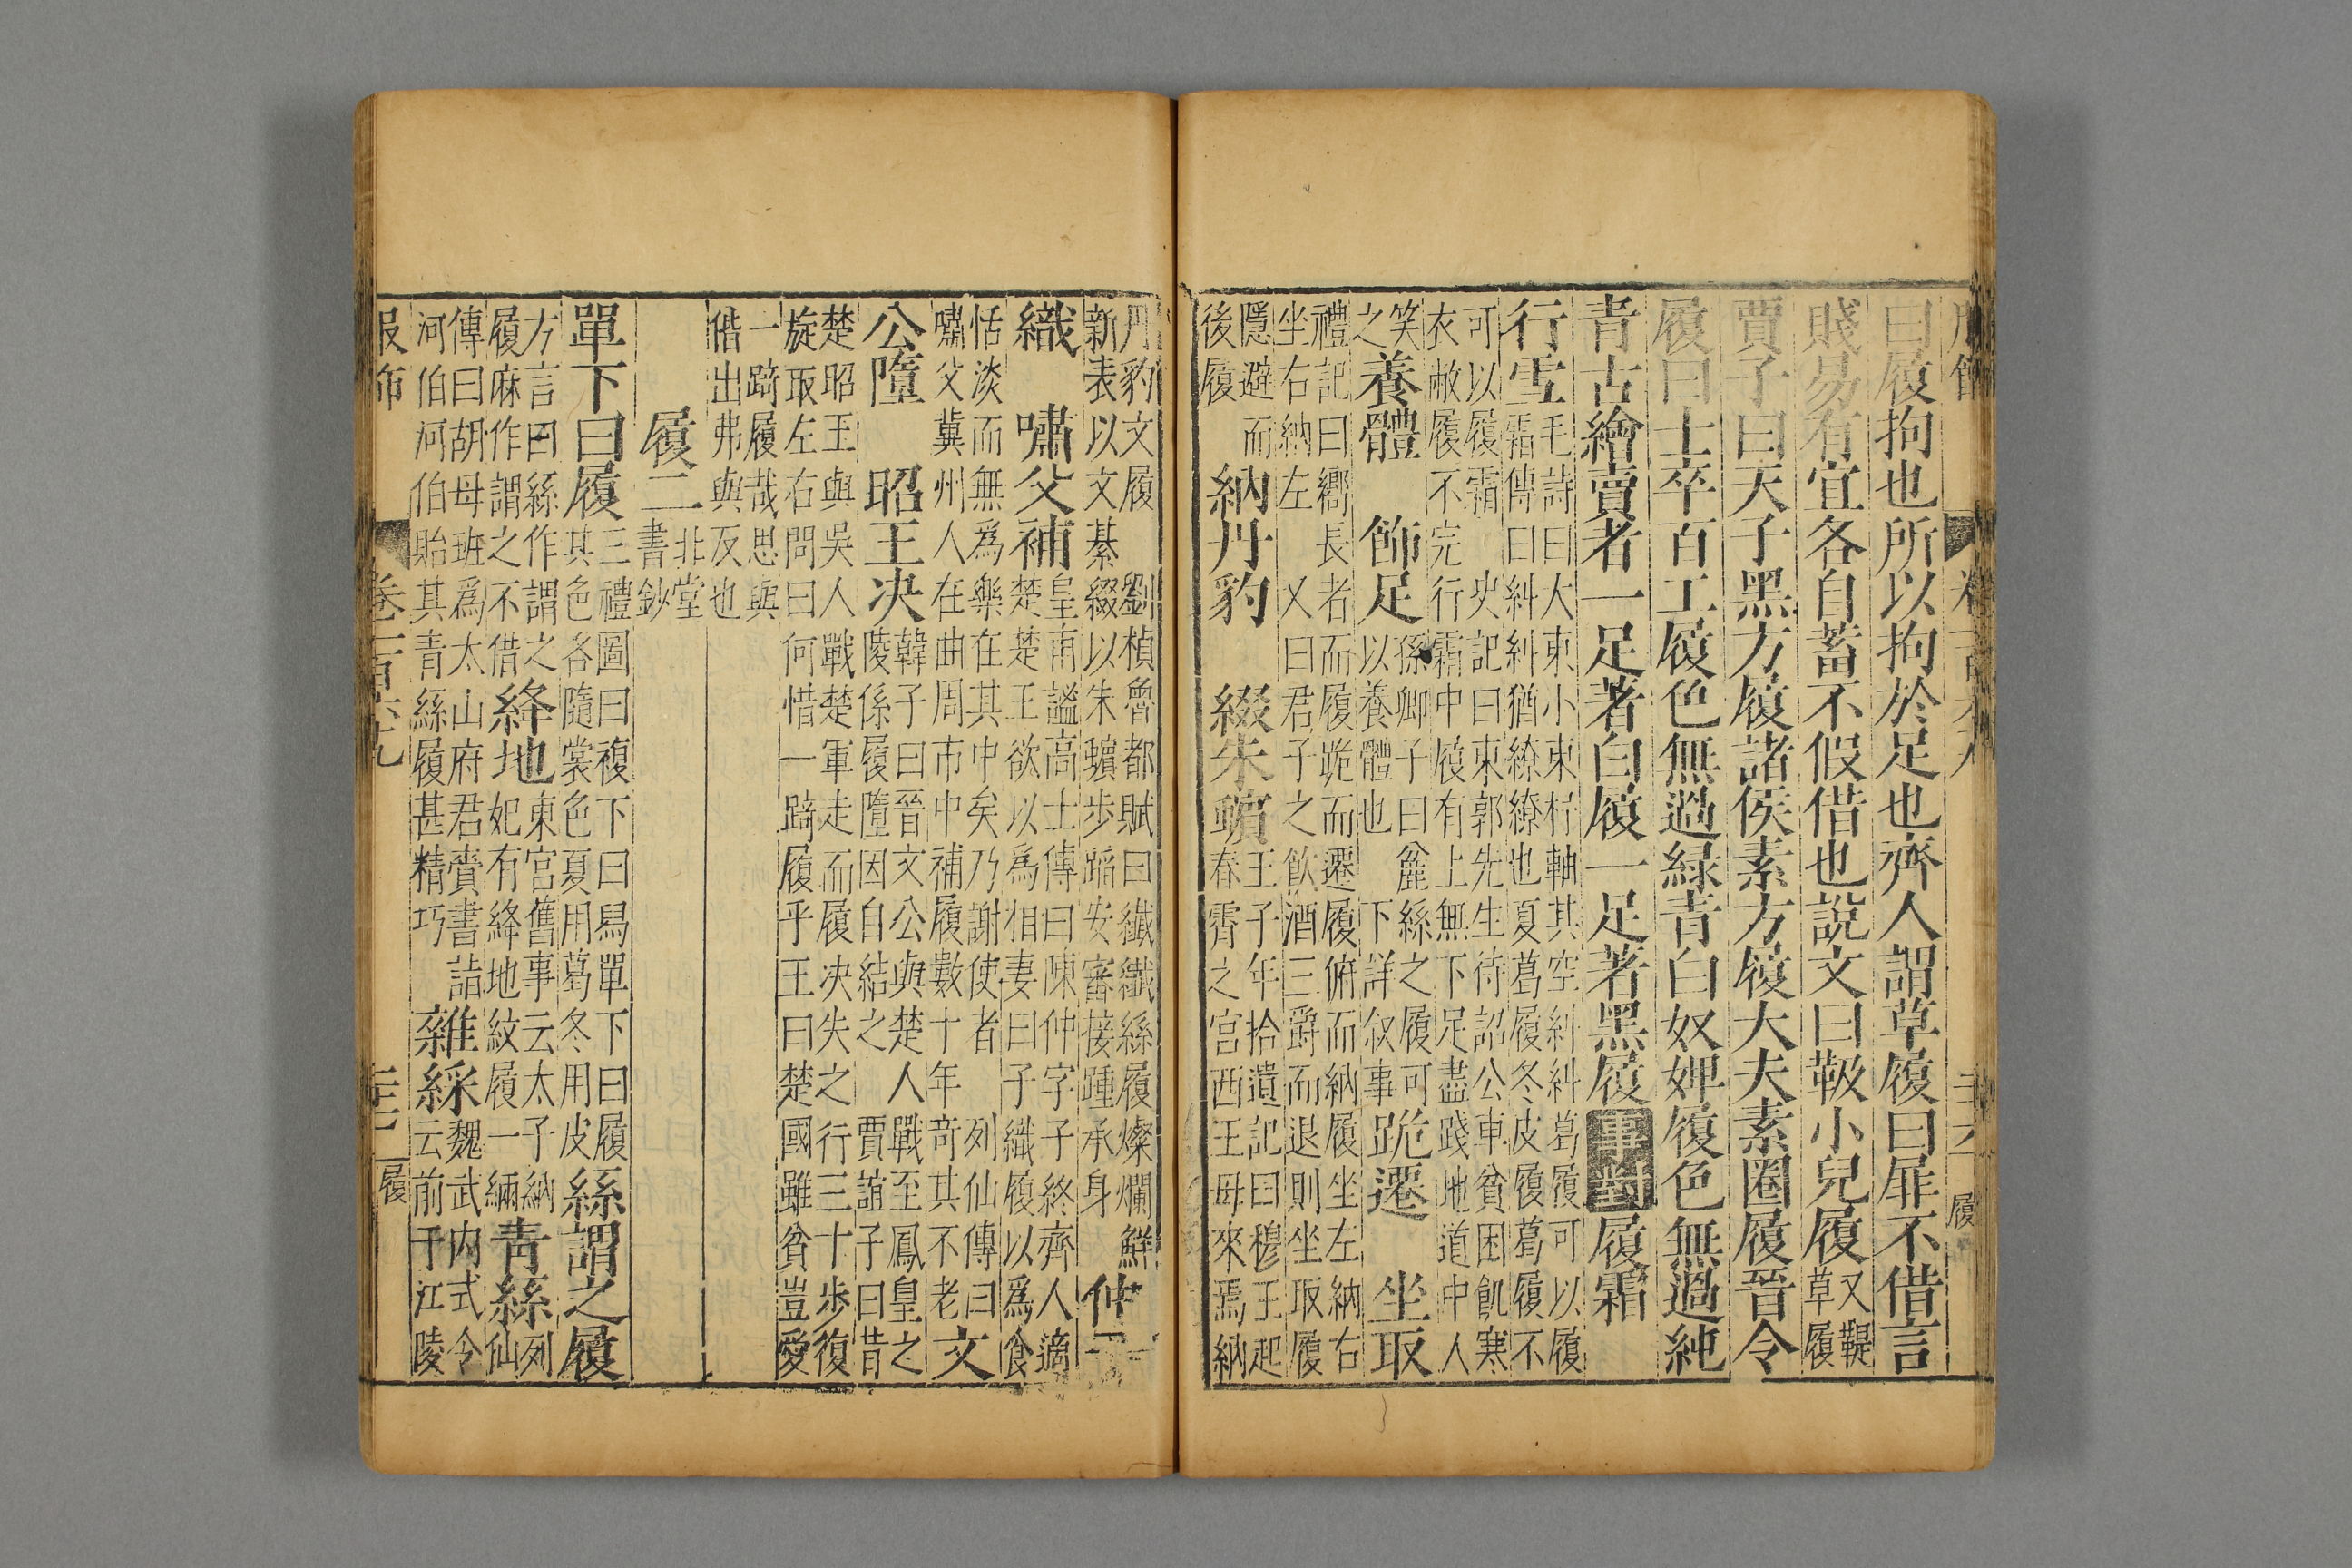 曰履拘也所以拘於足也齊人謂草履曰屝不借言
賤易有宜各自蓄不假借也說文曰靸小兒履又鞮草履
賈子曰天子黑方履諸侯素方履大夫素圈履晉令
履曰士卒百工履色無過緑青白奴婢履色無過純
青古繪賣者一足著白履一足著黑履事對履霜
行雪
毛詩曰大東小東杼軸其空糾糾葛屨可以履
霜傳曰糾糾猶繚繚也夏葛屨冬皮屨葛屨不
可以履霜 史記曰東郭先生待詔公車貧困飢寒
衣敝履不完行霜中履有上無下足盡踐地道中人
笑之
養體 飾足
孫卿子曰麄絲之履可
以養體也 下詳叙事
跪遷 坐取
禮記曰鄉長者而履跪而遷履俯而納履坐左納右
坐右納左 又曰君子之飲酒三爵而退則坐取履
隱避而後履
納丹豹 綴朱蠙
王子年拾遺記曰穆王起
春霄之宮西王母來焉納
丹豹文履 劉楨魯都賦曰纖纖絲履燦爛鮮
新表以文綦綴以朱蠙步蹈安審接踵承身
仲子
織 嘯父補
皇甫謐高士傳曰陳仲字子終齊人適
楚楚王欲以為相妻曰子織履以為食
恬淡而無為樂在其中矣乃謝使者 列仙傳曰
嘯父冀州人在曲周市中補履數十年奇其不老
文
公墮 昭王决
韓子曰晉文公與楚人戰至鳳皇之
陵係履墮因自結之 賈誼子曰昔
楚昭王與吳人戰楚軍走而履决失之行三十步復
旋取左右問曰何惜一踦履乎王曰楚國雖貧豈愛
一踦履哉思與
偕出弗與反也
履二 北堂書鈔
單下曰履
三禮圖曰複下曰舄單下曰履
其色各隨裳色夏用葛冬用皮
絲謂之履
方言曰絲作謂之
履麻作謂之不借
絳地
東宮舊事云太子納
妃有絳地紋履一緉
青絲
列仙
傳曰胡母班為太山府君賫書詣
河伯河伯貽其青絲履甚精巧
雜綵
魏武内式令
云前于江陵
服飾 卷一百六九 履